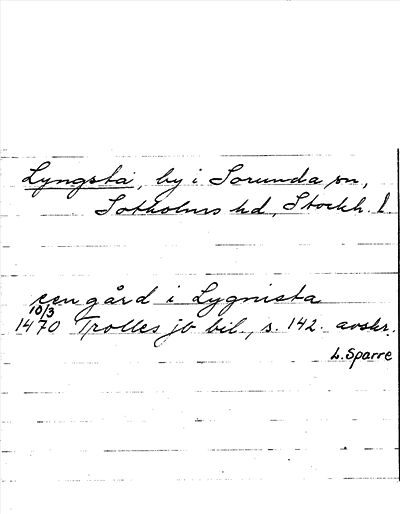 Lyngsta, by i Sorunda sn,
Sotholms hd, Stockh. l
een gård i Lygnista
10/3
1470 Trolles jb bil., s. 142. avskr.
L. Sparre